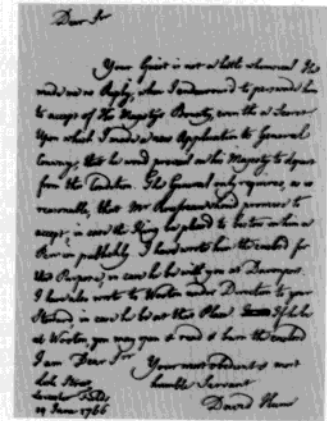 Dear Sr
Your Guest is not a little whimsical He
made me no Reply, when I endeavourd to perswade him
to accept of His Majesty's Bounty, even tho a Secret
Upon which I made a new Application to General
Conway, that he woud prevail on his Majesty to depart
from this Condition. The General only requires, as is
reasonable, that Mr Rousseau shoud promise to
accept, in case the King be pleasd to bestow on him a
Pension publickly. I have wrote him the enclosd for
this Purpose, in case he be with you at Davenport.
I have also wrote to Wooton under Direction to your
Steward, in case he be at that Place. If he be
at Wooton, you may you read & burn the enclosd
I am Dear Sir Your most obedient & most
Lisle Street humble Servant
Leicester Fields David Hume
19 June 1766